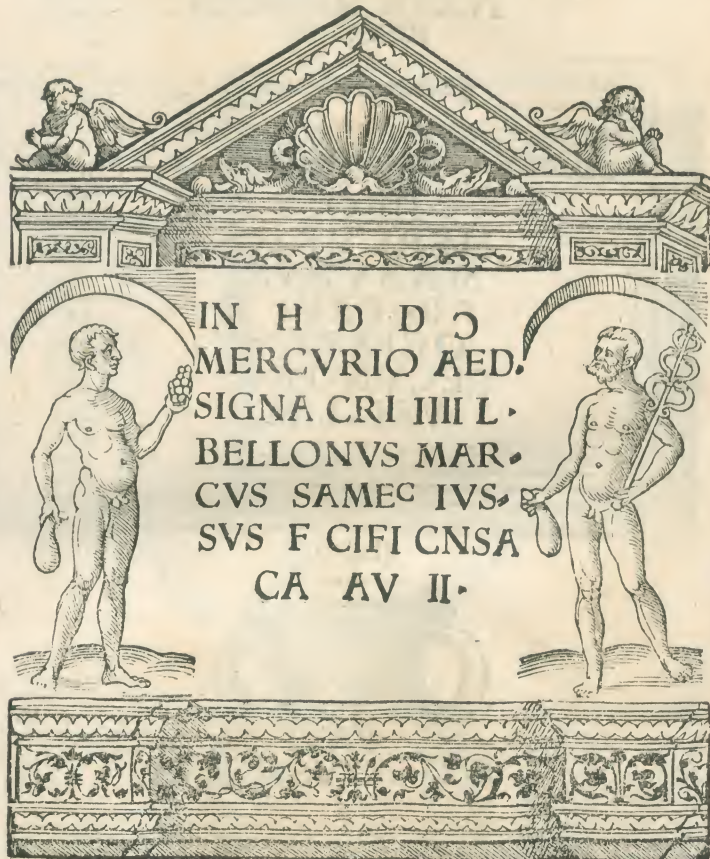 IN H D D Ɔ
MERCVRIO AED.
SIGNA CRI IIII L.
BELLONVS MAR.
CVS SAMEC IVS.
SVS F CIFI CNSA
CA AV II.